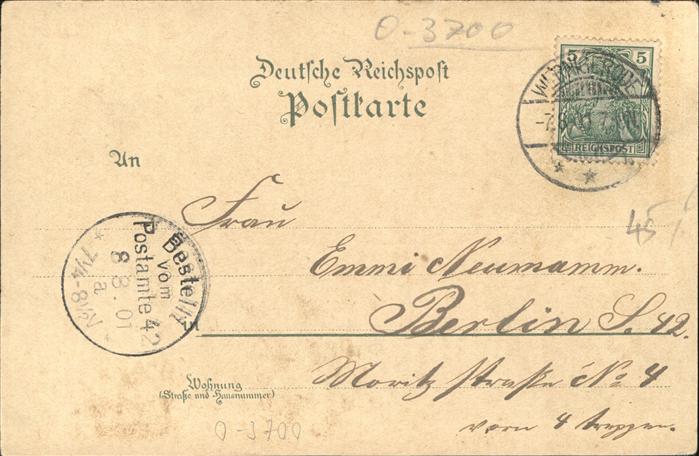 0-3700
Deutsche Reichspost
Postkarte
5 5
WERNIGERODE
REICHSPOST
An
Frau
45,-
Emmi Neumann.
Bestellt
vom
Postamte 42
8.8.01
7¼-8½N
Berlin S. 42.
Wohnung
(Straße und Hausnummer)
Moritz straße No 4
vorn 4 treppen.
0-3700